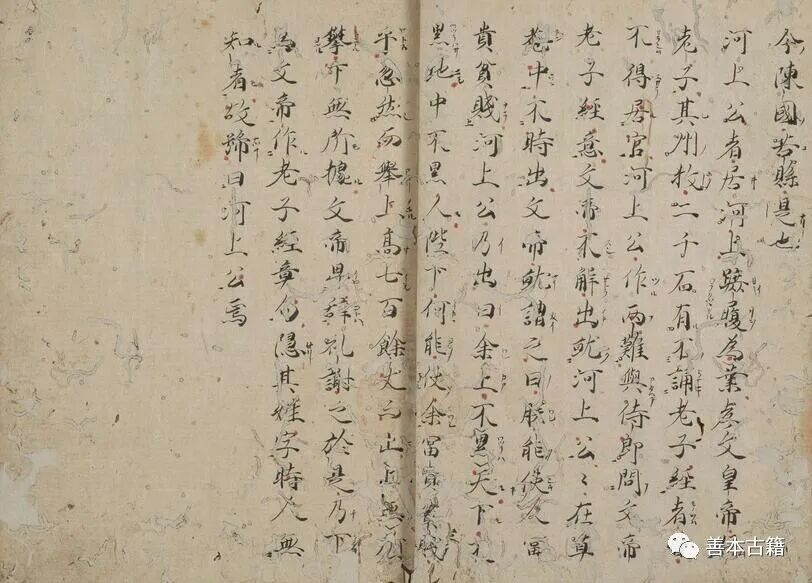 今陳國苦縣是也
河上公者居河上履為業孝文皇帝
老子其州牧二千石有不誦老子經者
不得居官河上公作兩難與侍郎問文帝
老子經意文帝不解出就河上公〻在草
菴中不時出文帝就謂之曰朕能使人冨
貴貧賤河上公乃出曰余上不累天下不
累地中不累人陛下何能使余冨貴貧賤
乎忽然而舉上高七百餘丈而止上無所
攀下無所據文帝卑辞礼謝之於是乃下
為文帝作老子經章句隱其姓字時人無
知者故號曰河上公焉
善本古籍